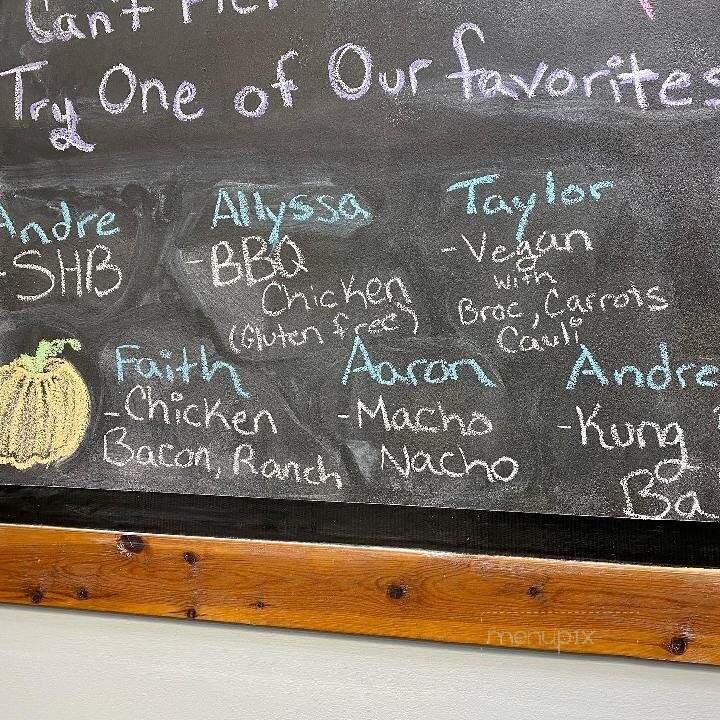 Can't
Try One of Our favorites
Andre
-SHB
Allyssa
-BBQ
Chicken
(Gluten free)
Taylor
-Vegan
with
Broc, Carrots
Cauli
Faith
-Chicken
Bacon, Ranch
Aaron
-Macho
Nacho
Andre
-Kung
Ba
menupix